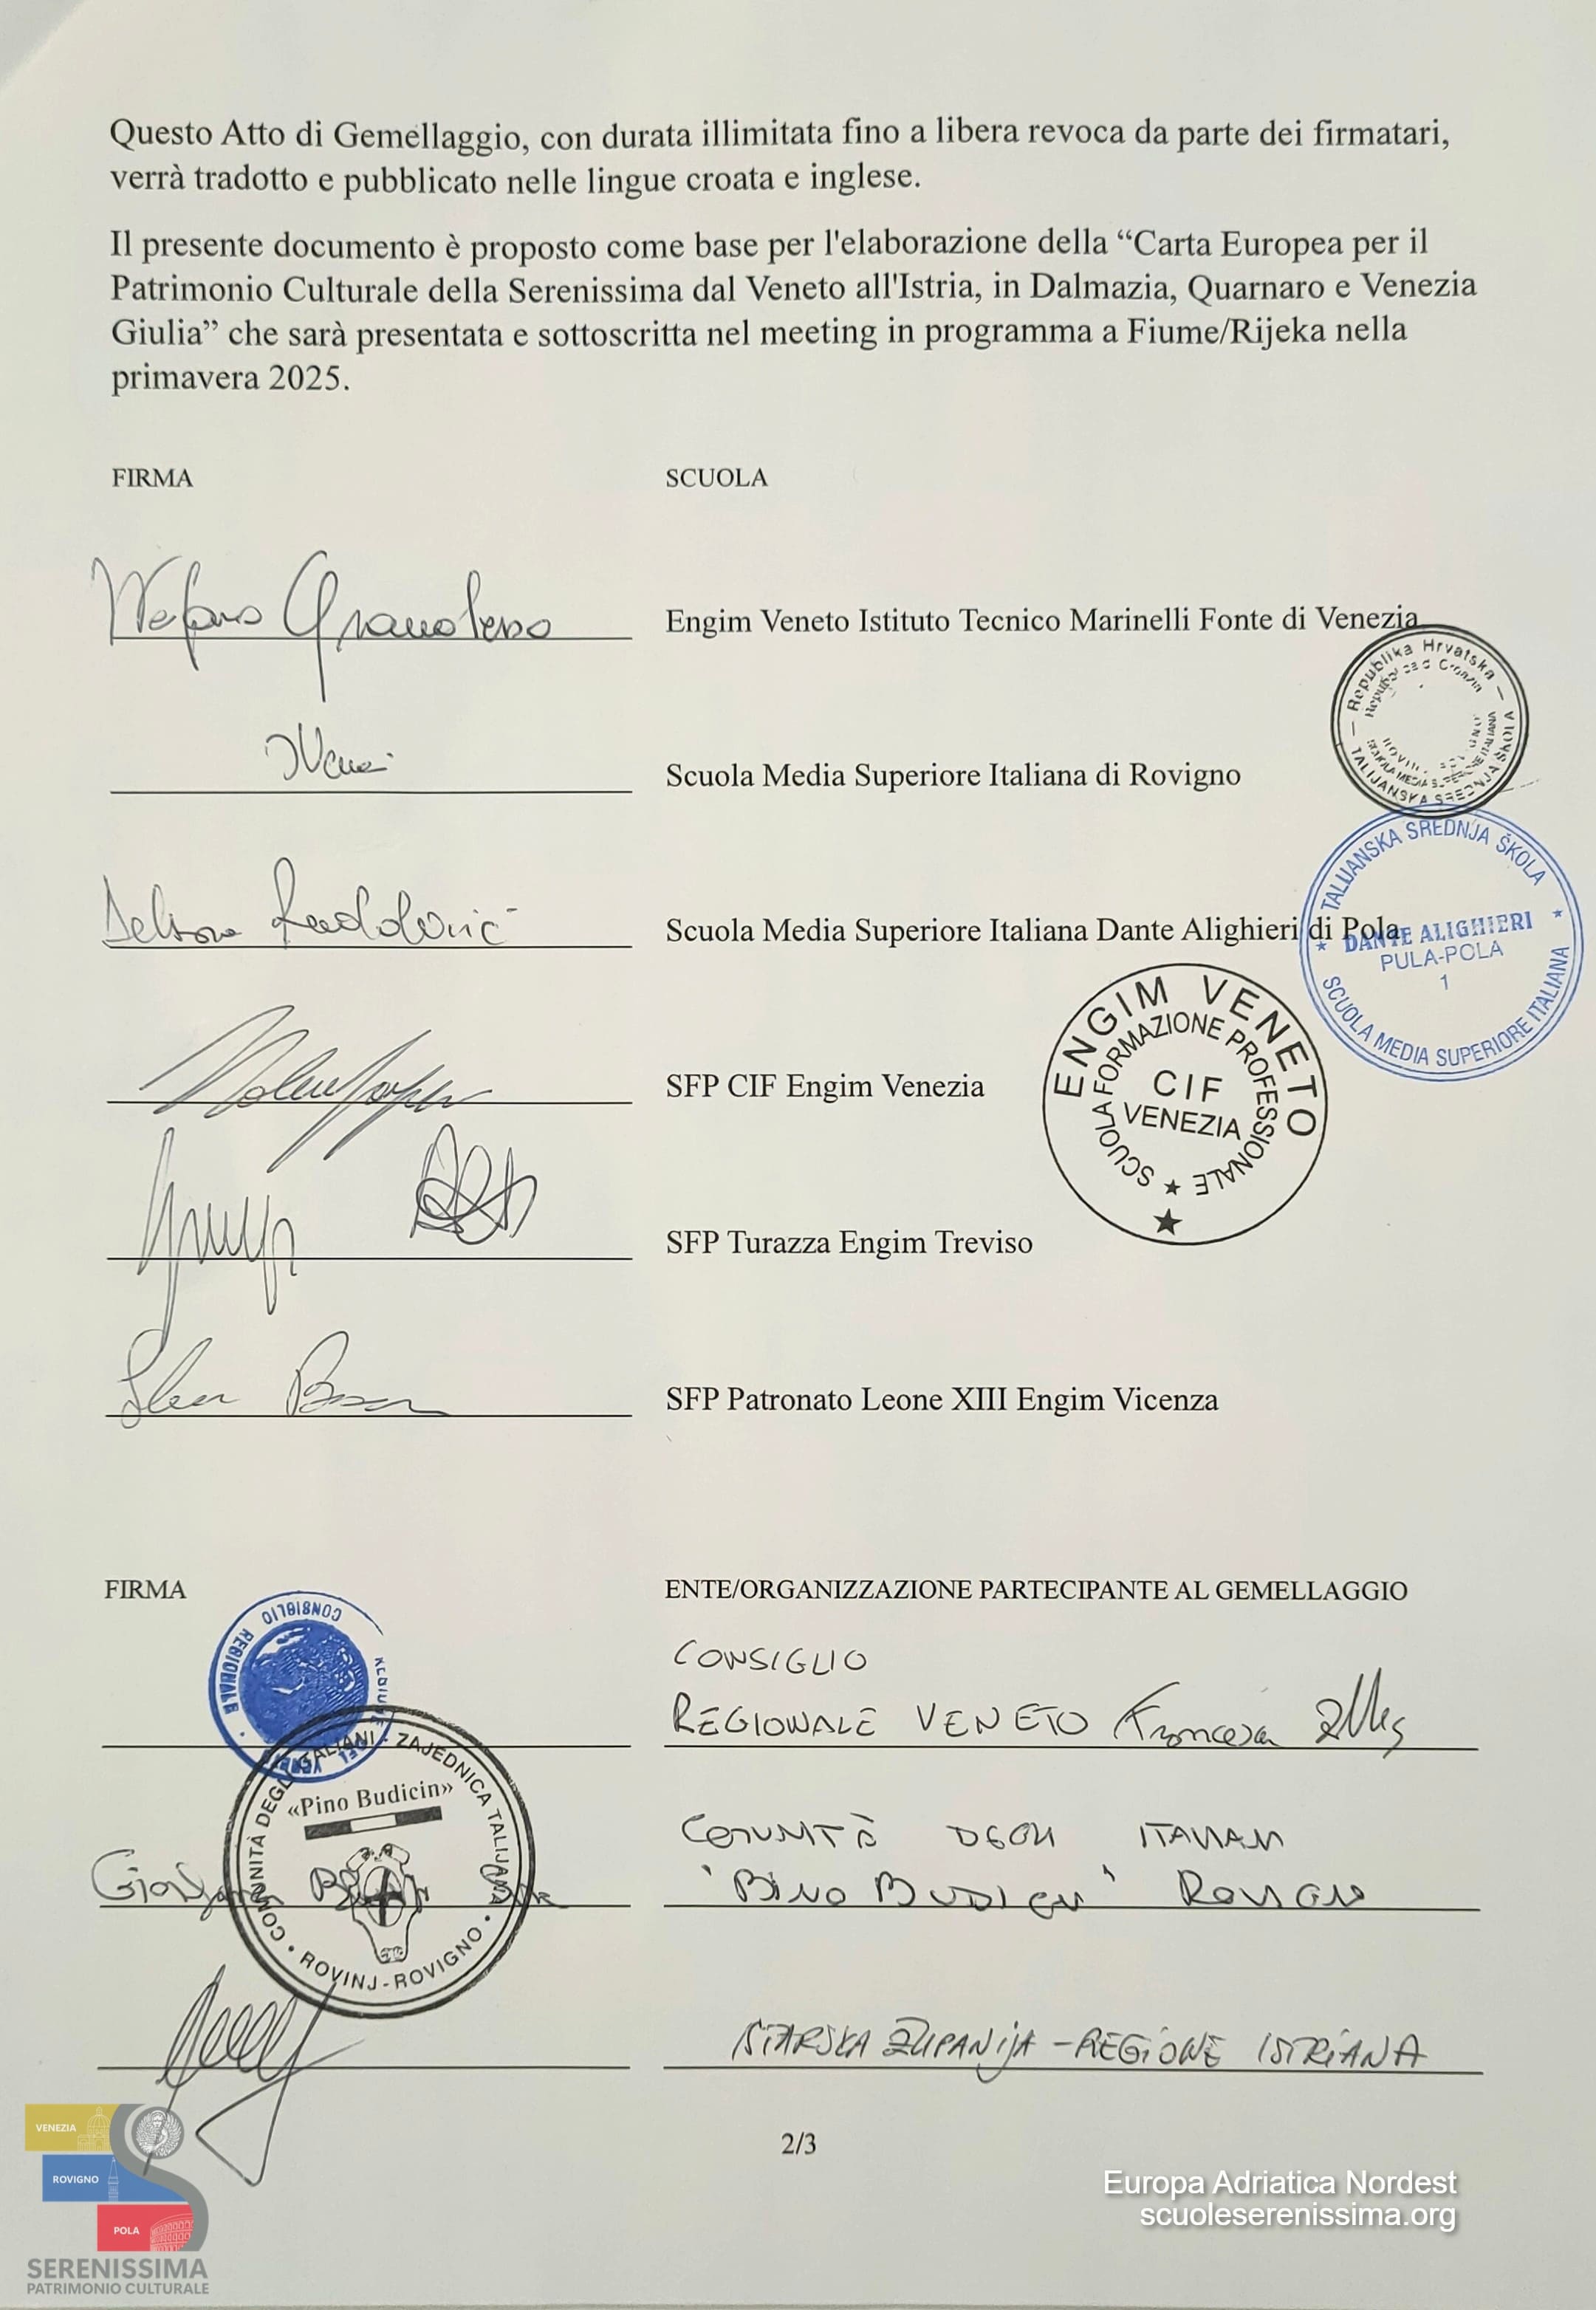 Questo Atto di Gemellaggio, con durata illimitata fino a libera revoca da parte dei firmatari,
verrà tradotto e pubblicato nelle lingue croata e inglese.
Il presente documento è proposto come base per l'elaborazione della “Carta Europea per il
Patrimonio Culturale della Serenissima dal Veneto all'Istria, in Dalmazia, Quarnaro e Venezia
Giulia” che sarà presentata e sottoscritta nel meeting in programma a Fiume/Rijeka nella
primavera 2025.
FIRMA SCUOLA
Engim Veneto Istituto Tecnico Marinelli Fonte di Venezia
Republika Hrvatska
TALIJANSKA SREDNJA ŠKOLA
Scuola Media Superiore Italiana di Rovigno
Scuola Media Superiore Italiana Dante Alighieri di Pola
TALIJANSKA SREDNJA ŠKOLA
DANTE ALIGHIERI
PULA-POLA
1
SCUOLA MEDIA SUPERIORE ITALIANA
SFP CIF Engim Venezia
ENGIM VENETO
SCUOLA FORMAZIONE PROFESSIONALE
CIF
VENEZIA
SFP Turazza Engim Treviso
SFP Patronato Leone XIII Engim Vicenza
FIRMA ENTE/ORGANIZZAZIONE PARTECIPANTE AL GEMELLAGGIO
CONSIGLIO REGIONALE
CONSIGLIO
REGIONALE VENETO Francesca
COMUNITÀ DEGLI ITALIANI · ZAJEDNICA TALIJANA
«Pino Budicin»
ROVINJ-ROVIGNO
COMUNITÀ DEGLI ITALIANI
ISTARSKA ŽUPANIJA - REGIONE ISTRIANA
2/3
VENEZIA
ROVIGNO
POLA
SERENISSIMA
PATRIMONIO CULTURALE
Europa Adriatica Nordest
scuoleserenissima.org